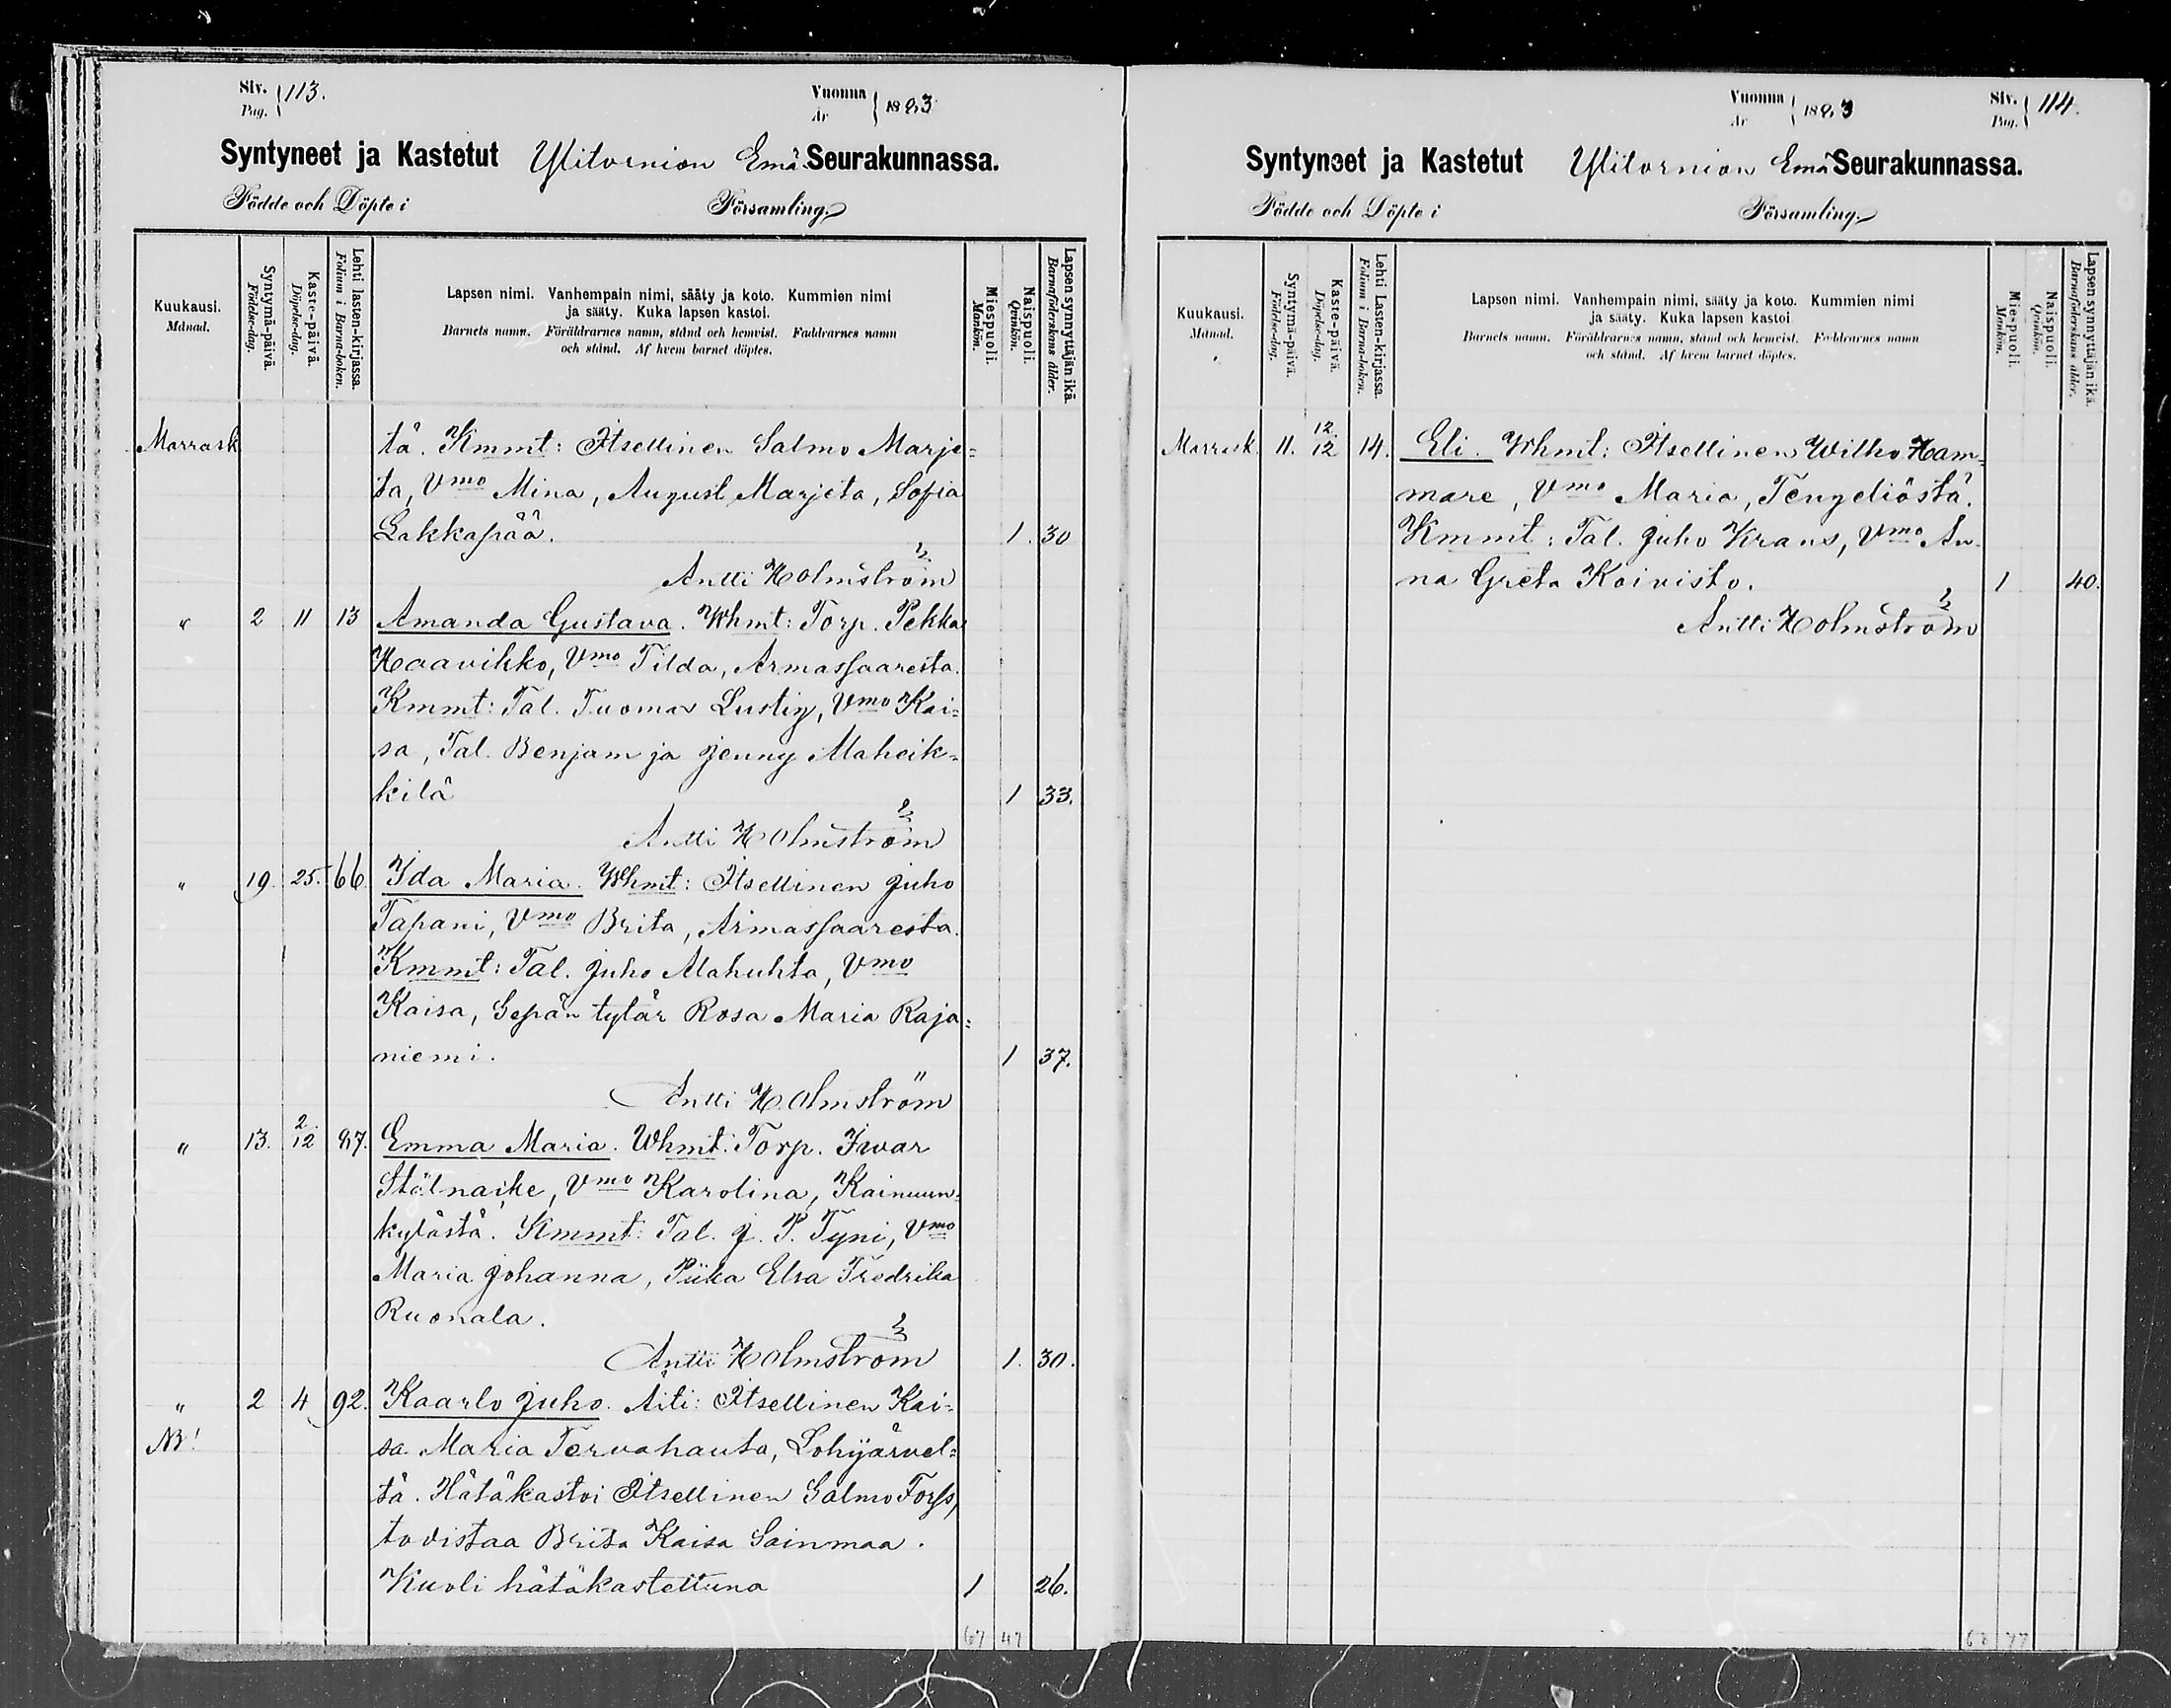 Siv. Pag. } 113.
Vuonna År } 1893
Syntyneet ja Kastetut Ylitornion Emä Seurakunnassa.
Födde och Döpte i Församling.
Kuukausi. Månad.
Syntymä-päivä. Födelse-dag.
Kaste-päivä. Döpelse-dag.
Lehti lasten-kirjassa. Folium i Barna-boken.
Lapsen nimi. Vanhempain nimi, sääty ja koto. Kummien nimi
ja sääty. Kuka lapsen kastoi.
Barnets namn. Föräldrarnes namn, stånd och hemvist. Faddrarnes namn
och stånd. Af hvem barnet döptes.
Miespuoli. Mankön.
Naispuoli. Qvinkön.
Lapsen synnyttäjän ikä. Barnaföderskans ålder.
Marrask tä. Kmmt: Itsellinen Salmo Marje-
ta, Vmo Mina, August Marjeta, Sofia
Lakkapää. 1. 30
Antti Holmström
" 2 11 13 Amanda Gustava. Whmt: Torp. Pekka
Haavikko, Vmo Tilda, Armassaaresta.
Kmmt: Tal. Tuomas Lustig, Vmo Kai-
sa, Tal. Benjam ja Jenny Maheik-
kilä 1 33.
Antti Holmström
" 19. 25. 66. Ida Maria. Whmt: Itsellinen Juho
Tapani, Vmo Brita, Armassaaresta.
Kmmt: Tal. Juho Alahuhta, Vmo
Kaisa, Sepän tytär Rosa Maria Raja-
niemi. 1 37.
Antti Holmström
" 13. 2./12 97. Emma Maria. Whmt: Torp. Iwar
Stålnacke, Vmo Karolina, Kainuun-
kylästä. Kmmt: Tal. J. P. Tyni, Vmo
Maria Johanna, Piika Elsa Fredrika
Ruonala.
Antti Holmström 1. 30.
" 2 4 92. Kaarlo Juho. Äiti: Itsellinen Kai-
NB! sa Maria Tervahauta, Lohijärvel-
tä. Hätäkastoi Itsellinen Salmo Forss,
todistaa Brita Kaisa Sainmaa.
Kuoli hätäkastettuna 1 26.
67 47
Vuonna År } 1893
Siv. Pag. } 114.
Syntyneet ja Kastetut Ylitornion Emä Seurakunnassa.
Födde och Döpte i Församling.
Kuukausi. Månad.
Syntymä-päivä. Födelse-dag.
Kaste-päivä. Döpelse-dag.
Lehti Lasten-kirjassa. Folium i Barna-boken.
Lapsen nimi. Vanhempain nimi, sääty ja koto. Kummien nimi
ja sääty. Kuka lapsen kastoi
Barnets namn. Föräldrarnes namn, stånd och hemvist. Faddrarnes namn
och stånd. Af hvem barnet döptes.
Miespuoli. Mankön.
Naispuoli. Qvinkön.
Lapsen synnyttäjän ikä. Barnaföderskans ålder.
Marrask. 11. 12./12 14. Eli. Whmt: Itsellinen Wilho Ham-
mare, Vmo Maria, Tengeliöstä.
Kmmt: Tal. Juho Krans, Vmo An-
na Greta Koivisto. 1 40.
Antti Holmström